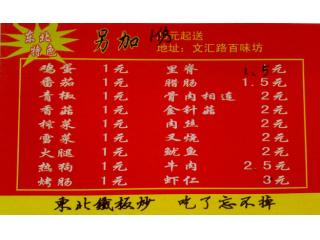 东北
特色
另加
元起送
地址：文汇路百味坊
鸡蛋 1元 里脊 1.5元
番茄 1元 腊肠 1.5元
青椒 1元 骨肉相连 2元
香菇 1元 金针菇 2元
榨菜 1元 肉丝 2元
雪菜 1元 叉烧 2元
火腿 1元 鱿鱼 2元
热狗 1元 牛肉 2.5元
烤肠 1元 虾仁 3元
东北铁板炒 吃了忘不掉